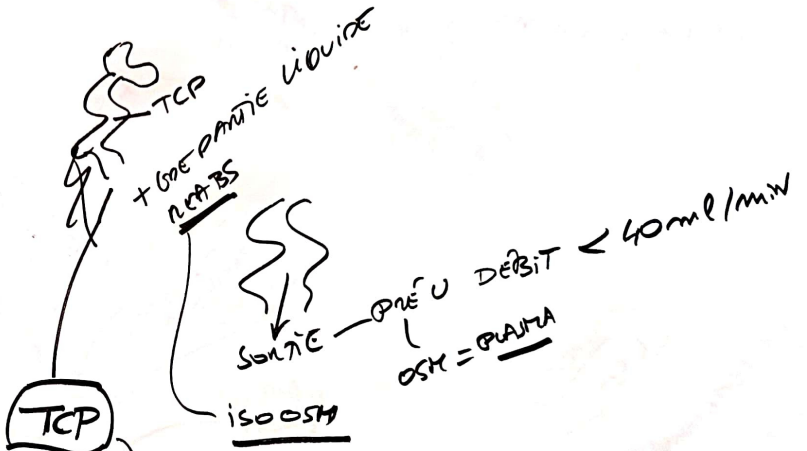 TCP
+ GDE PARTIE LIQUIDE
REABS
SORTIE — PRÉ U DÉBIT < 40 ml/min
OSM = PLASMA
ISOOSM
TCP